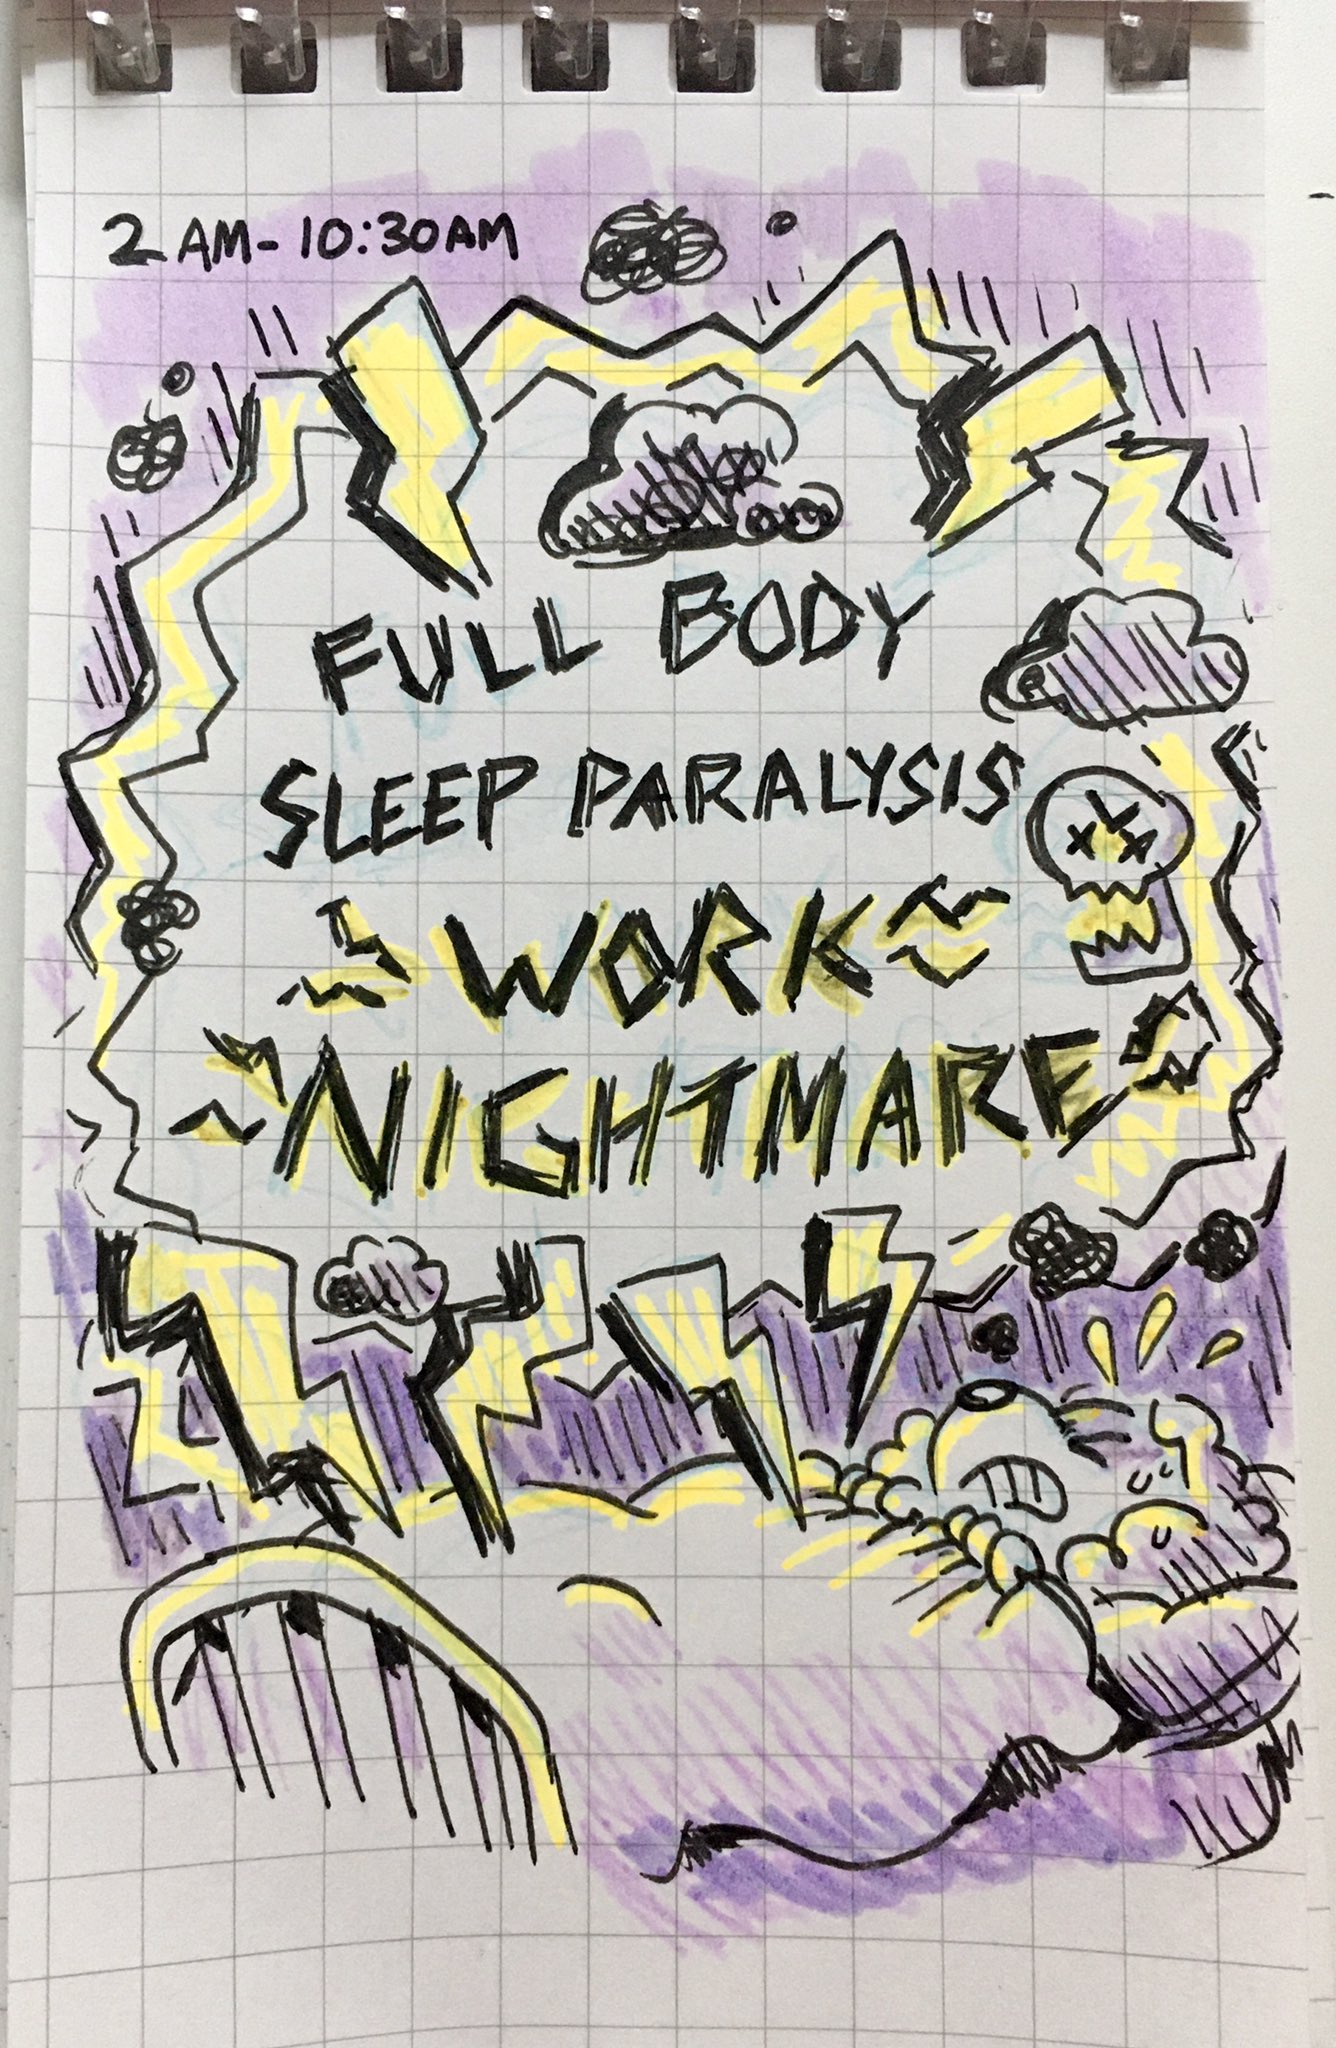 2 AM - 10:30AM
FULL BODY
SLEEP PARALYSIS
WORK
NIGHTMARE